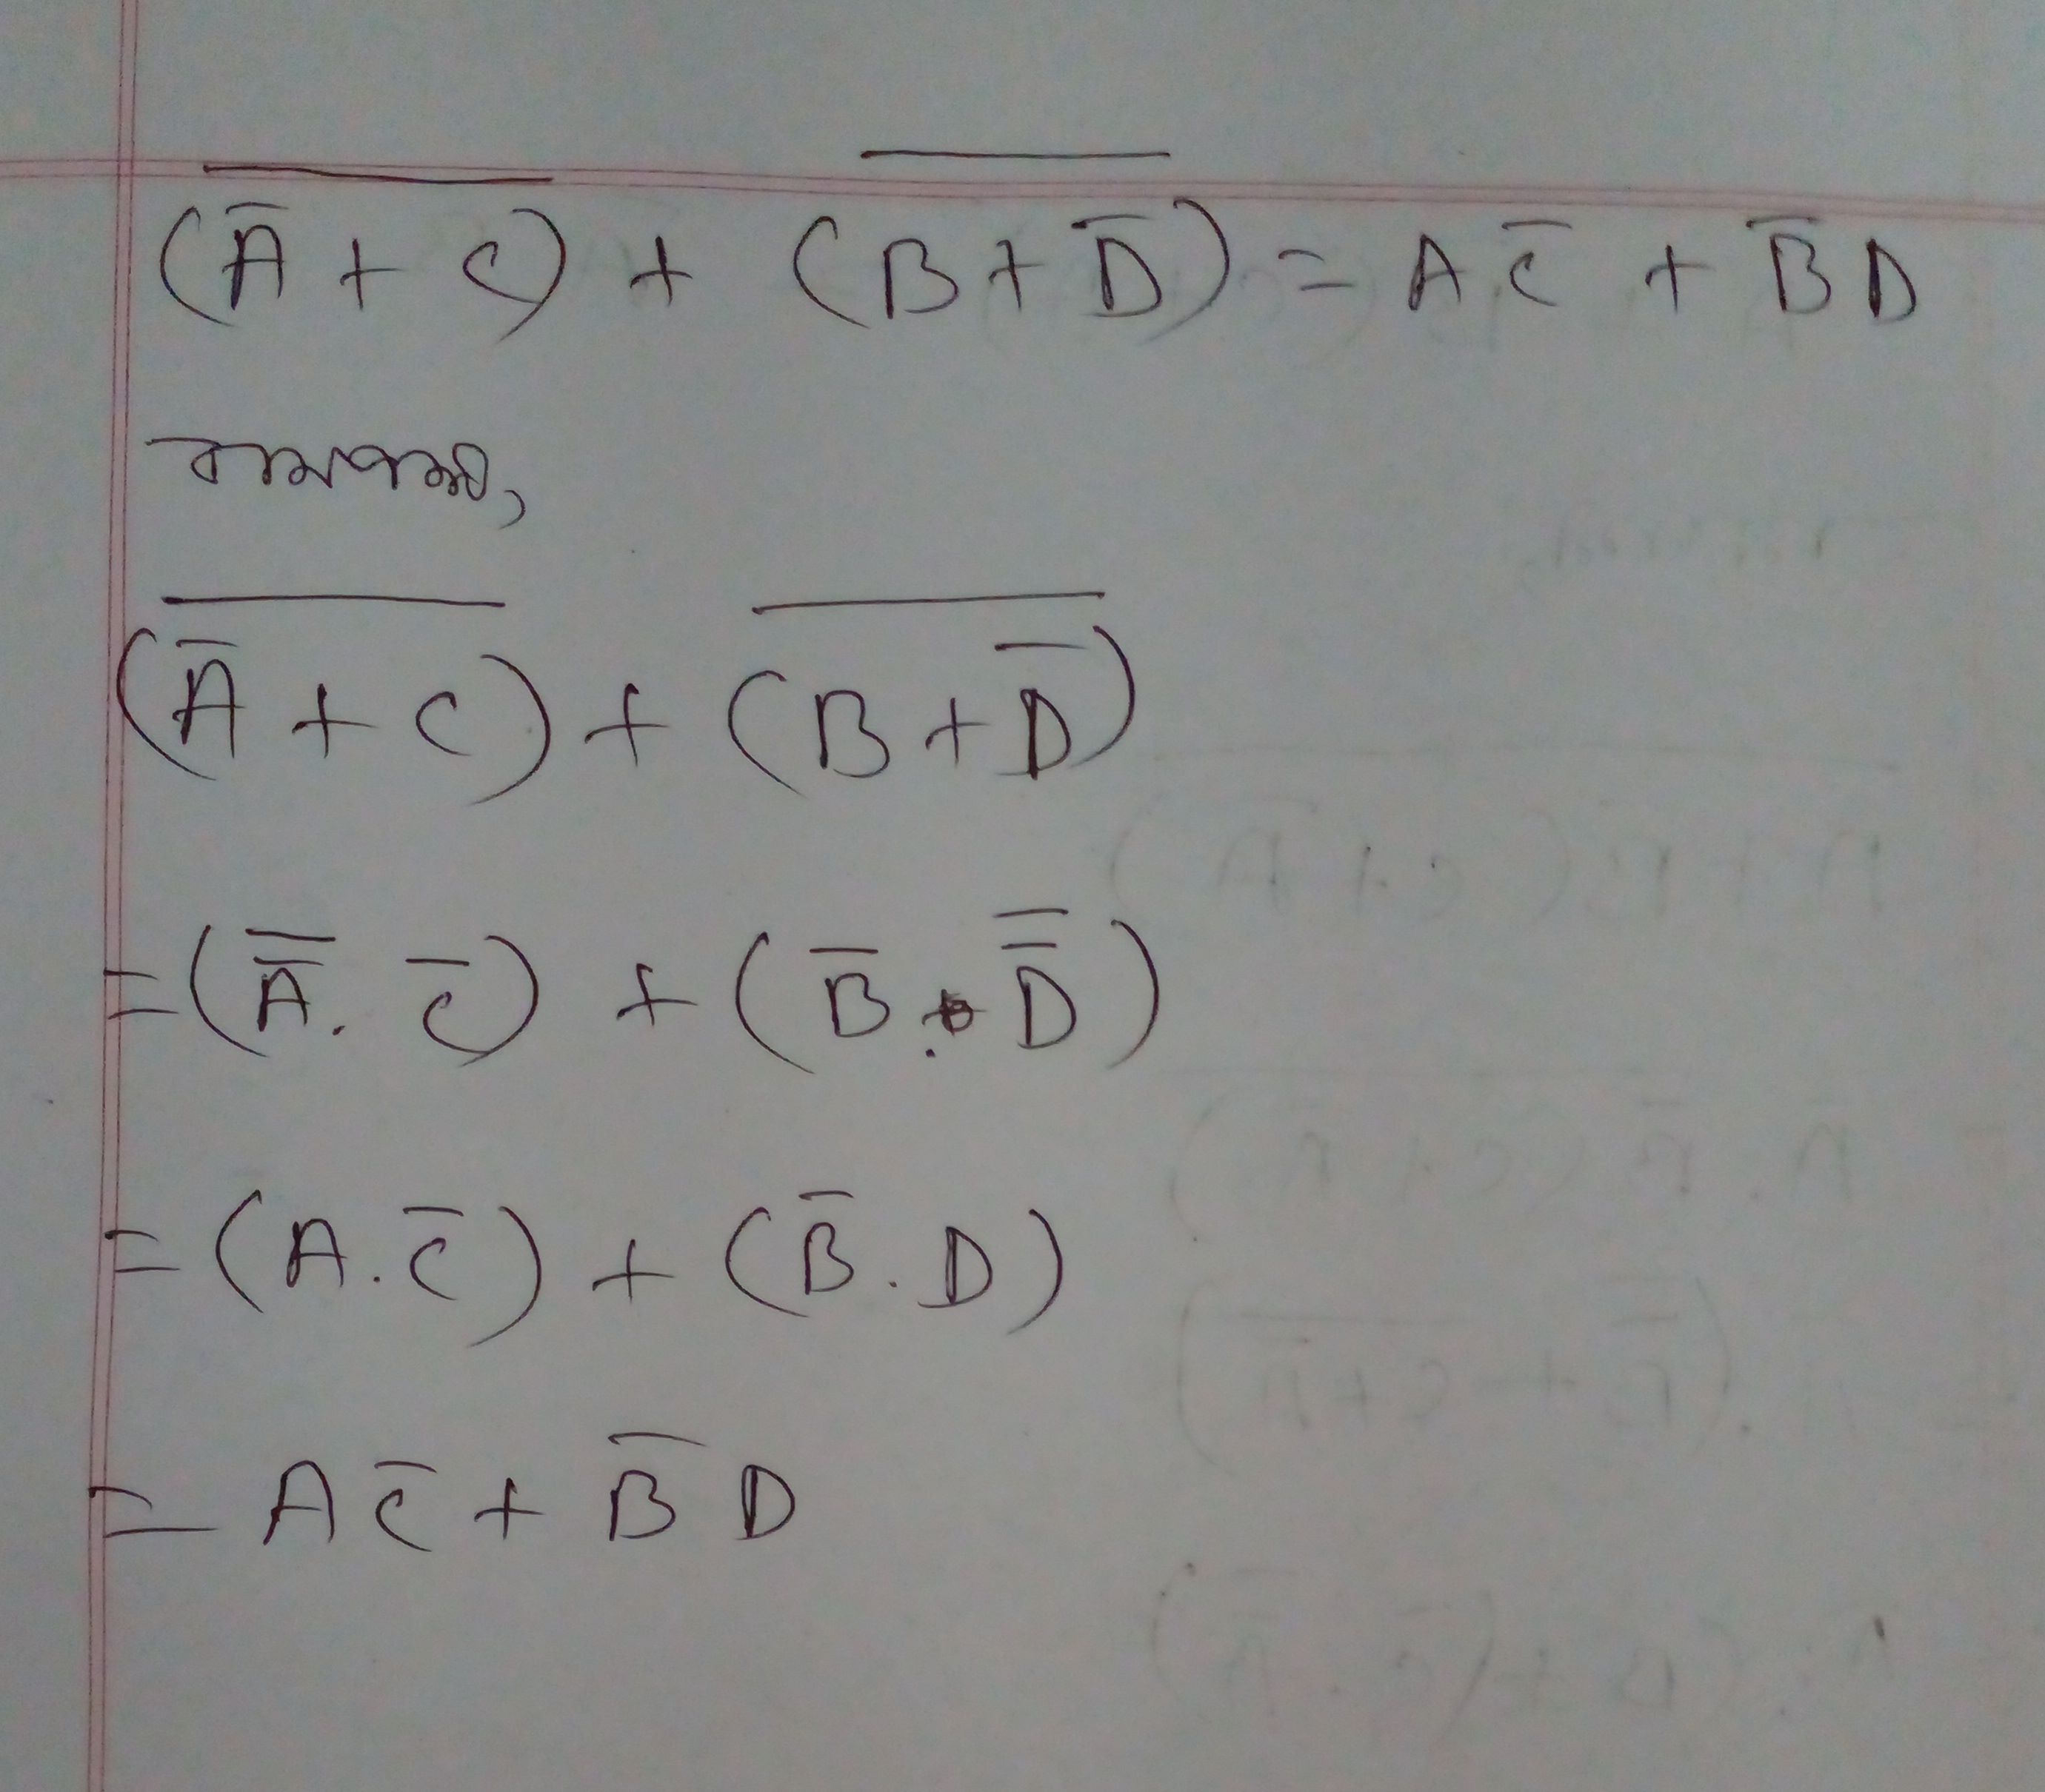 $\overline{(\bar{A} + C)} + \overline{(B + \bar{D})} = A\bar{C} + \bar{B}D$
বামপক্ষ,
$\overline{(\bar{A} + C)} + \overline{(B + \bar{D})}$
$= (\bar{\bar{A}} . \bar{C}) + (\bar{B} . \bar{\bar{D}})$
$= (A . \bar{C}) + (\bar{B} . D)$
$= A\bar{C} + \bar{B}D$